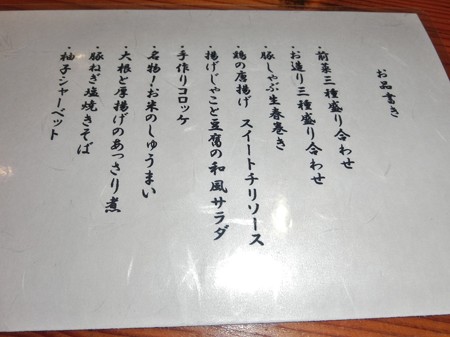 お品書き
・前菜三種盛り合わせ
・お造り三種盛り合わせ
・豚しゃぶ生春巻き
・鶏の唐揚げ スイートチリソース
・揚げじゃこと豆腐の和風サラダ
・手作りコロッケ
・名物！お米のしゅうまい
・大根と厚揚げのあっさり煮
・豚ねぎ塩焼きそば
・柚子シャーベット